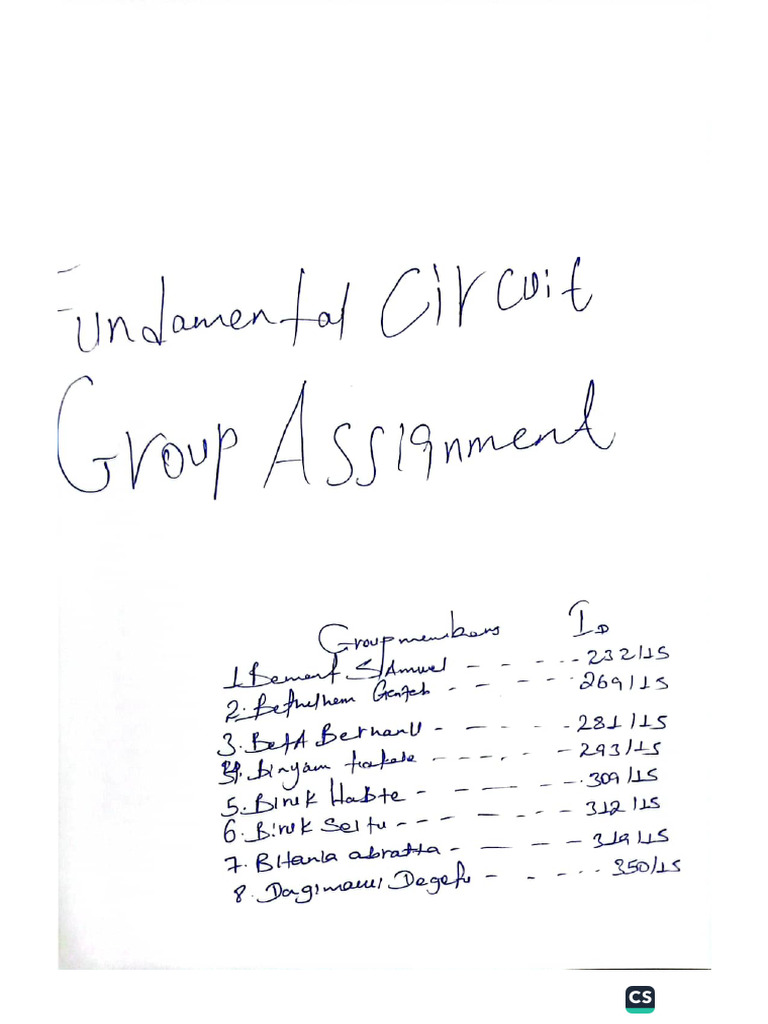 Fundamental Circuit
Group Assignment
Group members ID
1. Bement SAmuel - - - - - - 232/15
2. Bethelhem - - - - - - 269/15
3. BetA BerhanU - - - - - - 281/15
Binyam - - - - - - 293/15
5. Biruk Habte - - - - - 309/15
6. Biruk Seifu - - - - - - - 312/15
7. BItania abratta - - - - 319/15
8. Dagimawi Degefu - - - - - 350/15
CS